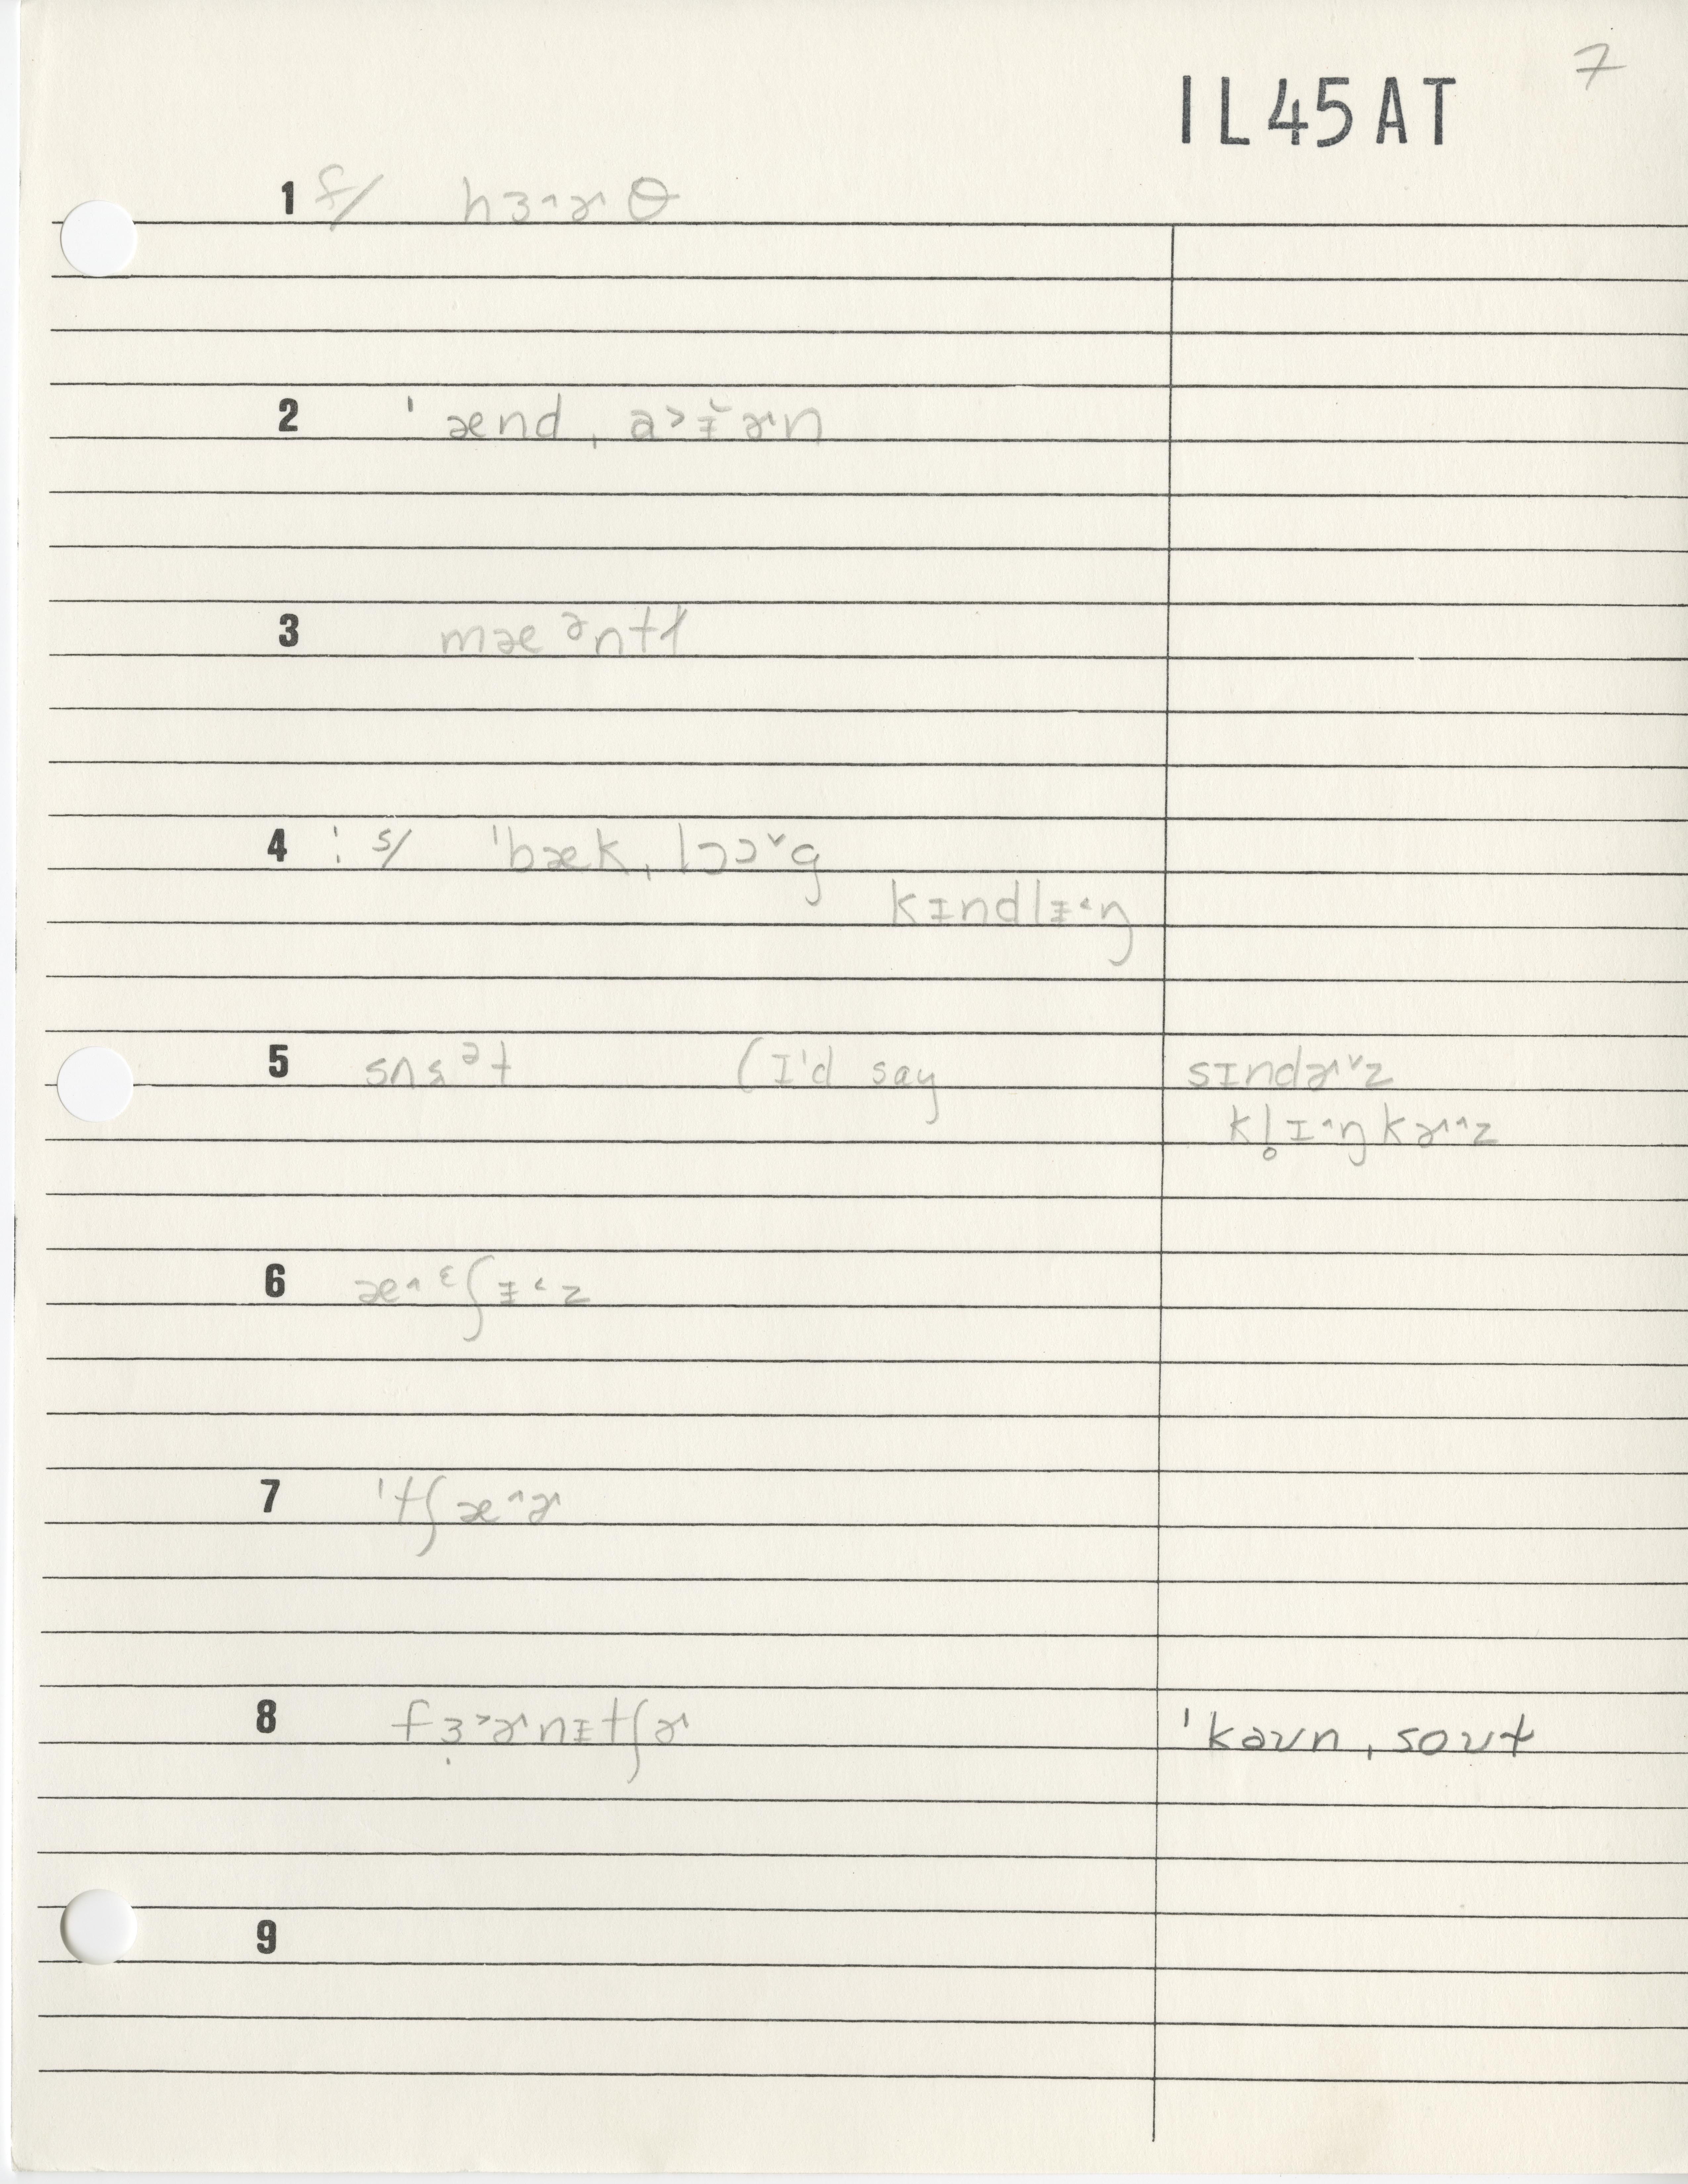 7
IL45AT
1 f/ hɜ˄ɚθ
2 ˈænd ˌa˃ᵻ̆ɚn
3 mæᵊntɫ
4 ⁝ s/ ˈbæk ˌlɔɔ˅g
kɪndlᵻ˂ŋ
5 (I'd say sɪndɚ˅z
kl̥ɪ˄ŋkɚ˄z
6 æ˄ᵋʃᵻ˂z
7 ˈtʃæ˄ɚ
8 fɜ̣˃ɚnᵻtʃɚ ˈkaʊn ˌsoʊt
9